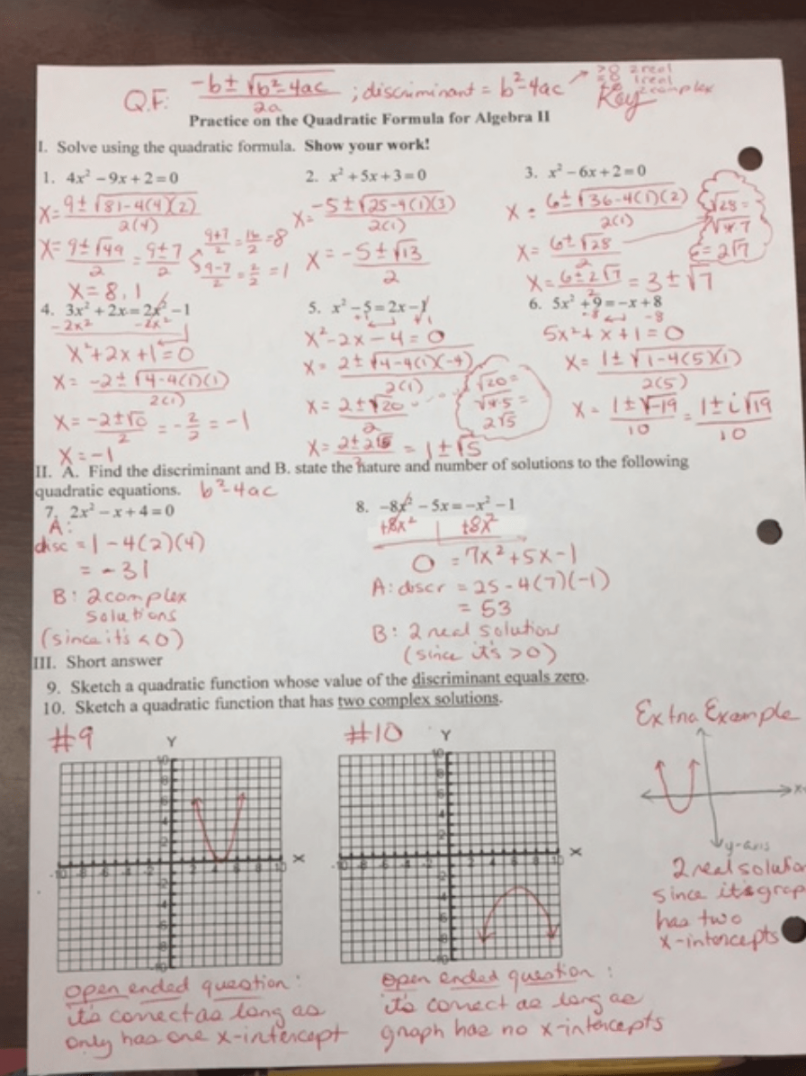 Q.F: -b ± √b²-4ac / 2a ; discriminant = b²-4ac → >0 2 real
=0 1 real
2 complex
Key
Practice on the Quadratic Formula for Algebra II
I. Solve using the quadratic formula. Show your work!
1. 4x² - 9x + 2 = 0
x = 9 ± √81-4(4)(2) / 2(4)
x = 9 ± √49 / 2 = 9 ± 7 / 2
9+7 / 2 = 16 / 2 = 8
9-7 / 2 = 2 / 2 = 1
x = 8, 1
2. x² + 5x + 3 = 0
x = -5 ± √25-4(1)(3) / 2(1)
x = -5 ± √13 / 2
3. x² - 6x + 2 = 0
x = 6 ± √36-4(1)(2) / 2(1)
x = 6 ± √28 / 2
√28 =
√4·7
= 2√7
x = 6 ± 2√7 / 2 = 3 ± √7
4. 3x² + 2x = 2x² - 1
-2x² -2x²
x² + 2x + 1 = 0
x = -2 ± √4-4(1)(1) / 2(1)
x = -2 ± √0 / 2 = -2/2 = -1
x = -1
5. x² - 5 = 2x - 1
+1 +1
x² - 2x - 4 = 0
x = 2 ± √4-4(1)(-4) / 2(1)
x = 2 ± √20 / 2
√20 =
√4·5 =
2√5
x = 2 ± 2√5 / 2 = 1 ± √5
6. 5x² + 9 = -x + 8
-8 -8
5x² + x + 1 = 0
x = 1 ± √1-4(5)(1) / 2(5)
x = 1 ± √-19 / 10 = 1 ± i√19 / 10
II. A. Find the discriminant and B. state the nature and number of solutions to the following
quadratic equations. b²-4ac
7. 2x² - x + 4 = 0
A:
disc = 1 - 4(2)(4)
= -31
B: 2 complex
solutions
(since it's < 0)
8. -8x² - 5x = -x² - 1
+8x² +8x²
0 = 7x² + 5x - 1
A: discr = 25 - 4(7)(-1)
= 53
B: 2 real solution
(since it's > 0)
III. Short answer
9. Sketch a quadratic function whose value of the discriminant equals zero.
10. Sketch a quadratic function that has two complex solutions.
#9
Y
X
#10
Y
X
Extra Example
x
y-axis
2 real solutio
since it's grap
has two
x-intercepts
open ended question:
it's correct as long as
only has one x-intercept
open ended question:
it's correct as long as
graph has no x-intercepts